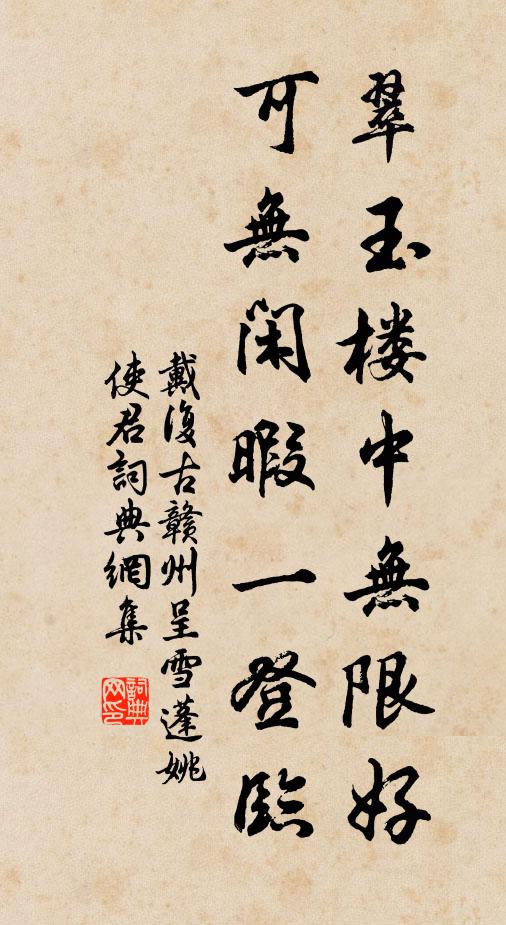 翠玉楼中無限好
可無閑暇一登臨
戴復古贛州呈雪蓬姚
使君詞典網集
詞典
网印